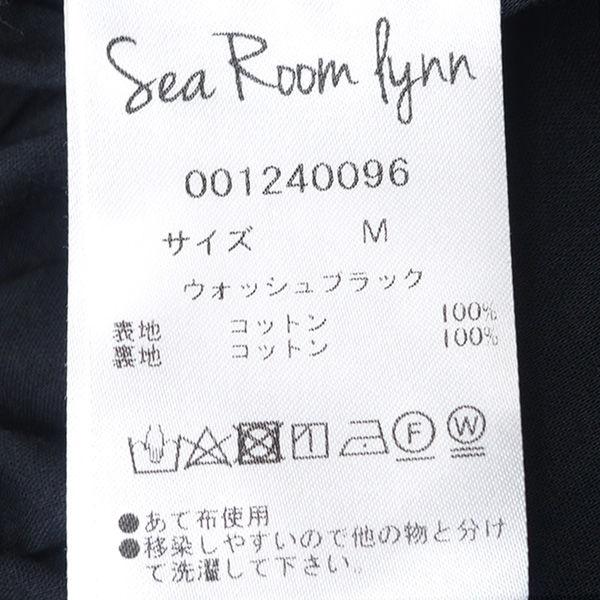 Sea Room lynn
001240096
サイズ M
ウォッシュブラック
表地 コットン 100%
裏地 コットン 100%
F W
●あて布使用
●移染しやすいので他の物と分け
て洗濯して下さい。